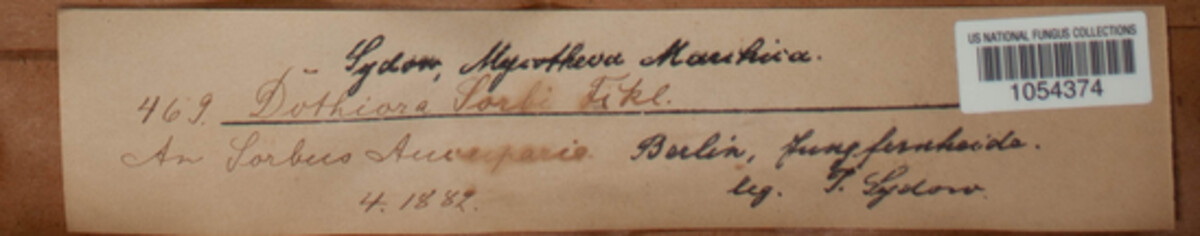 Sydow, Mycotheca Marchica.
US NATIONAL FUNGUS COLLECTIONS
1054374
469. Dothiora Sorbi Fckl.
An Sorbus Aucuparia. Berlin, Jungfernheide.
4. 1882. leg. P. Sydow.